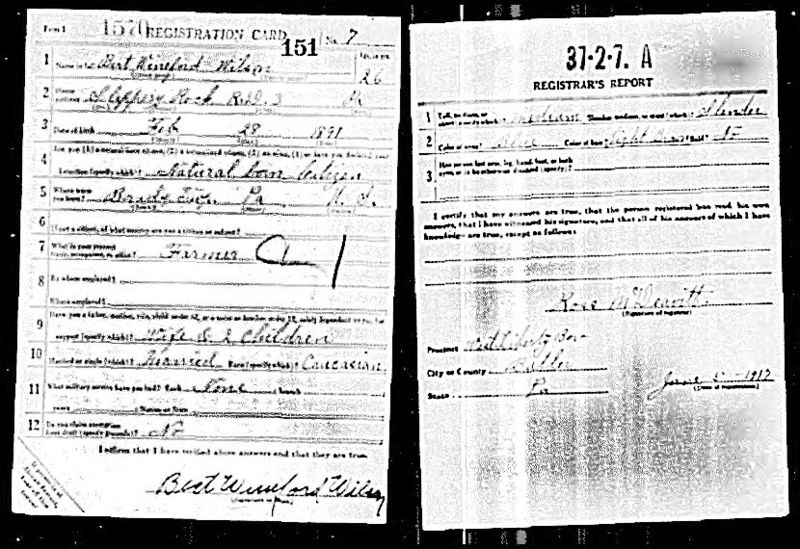 Form 1 1570 REGISTRATION CARD 151 No. 7
1 Name in full Bert Wineford Wilson Age, in yrs. 26
2 Home address Slippery Rock R.D. 3 Pa
3 Date of birth Feb 28 1891
4 Are you (1) a natural-born citizen, (2) a naturalized citizen, (3) an alien, (4) or have you declared your
intention (specify which)? Natural born Citizen
5 Where were you born? Twp. Pa U. S.
6 If not a citizen, of what country are you a citizen or subject?
7 What is your present trade, occupation, or office? Farmer
8 By whom employed?
Where employed?
9 Have you a father, mother, wife, child under 12, or a sister or brother under 12, solely dependent on you for
support (specify which)? Wife & 2 children
10 Married or single (which)? Married Race (specify which)? Caucasian
11 What military service have you had? Rank None branch
years Nation or State
12 Do you claim exemption from draft (specify grounds)? No
I affirm that I have verified above answers and that they are true.
Bert Wineford Wilson
37-2-7. A
REGISTRAR'S REPORT
1 Tall, medium, or short (specify which)? medium Slender, medium, or stout (which)? Slender
2 Color of eyes? Blue Color of hair? Light Brown Bald? No
3 Has person lost arm, leg, hand, foot, or both
eyes, or is he otherwise disabled (specify)?
I certify that my answers are true, that the person registered has read his own
answers, that I have witnessed his signature, and that all of his answers of which I have
knowledge are true, except as follows:
Ross McDeavitt
(Signature of registrar)
Precinct West Liberty Bor
City or County Butler
State Pa June 5 - 1917
(Date of registration)